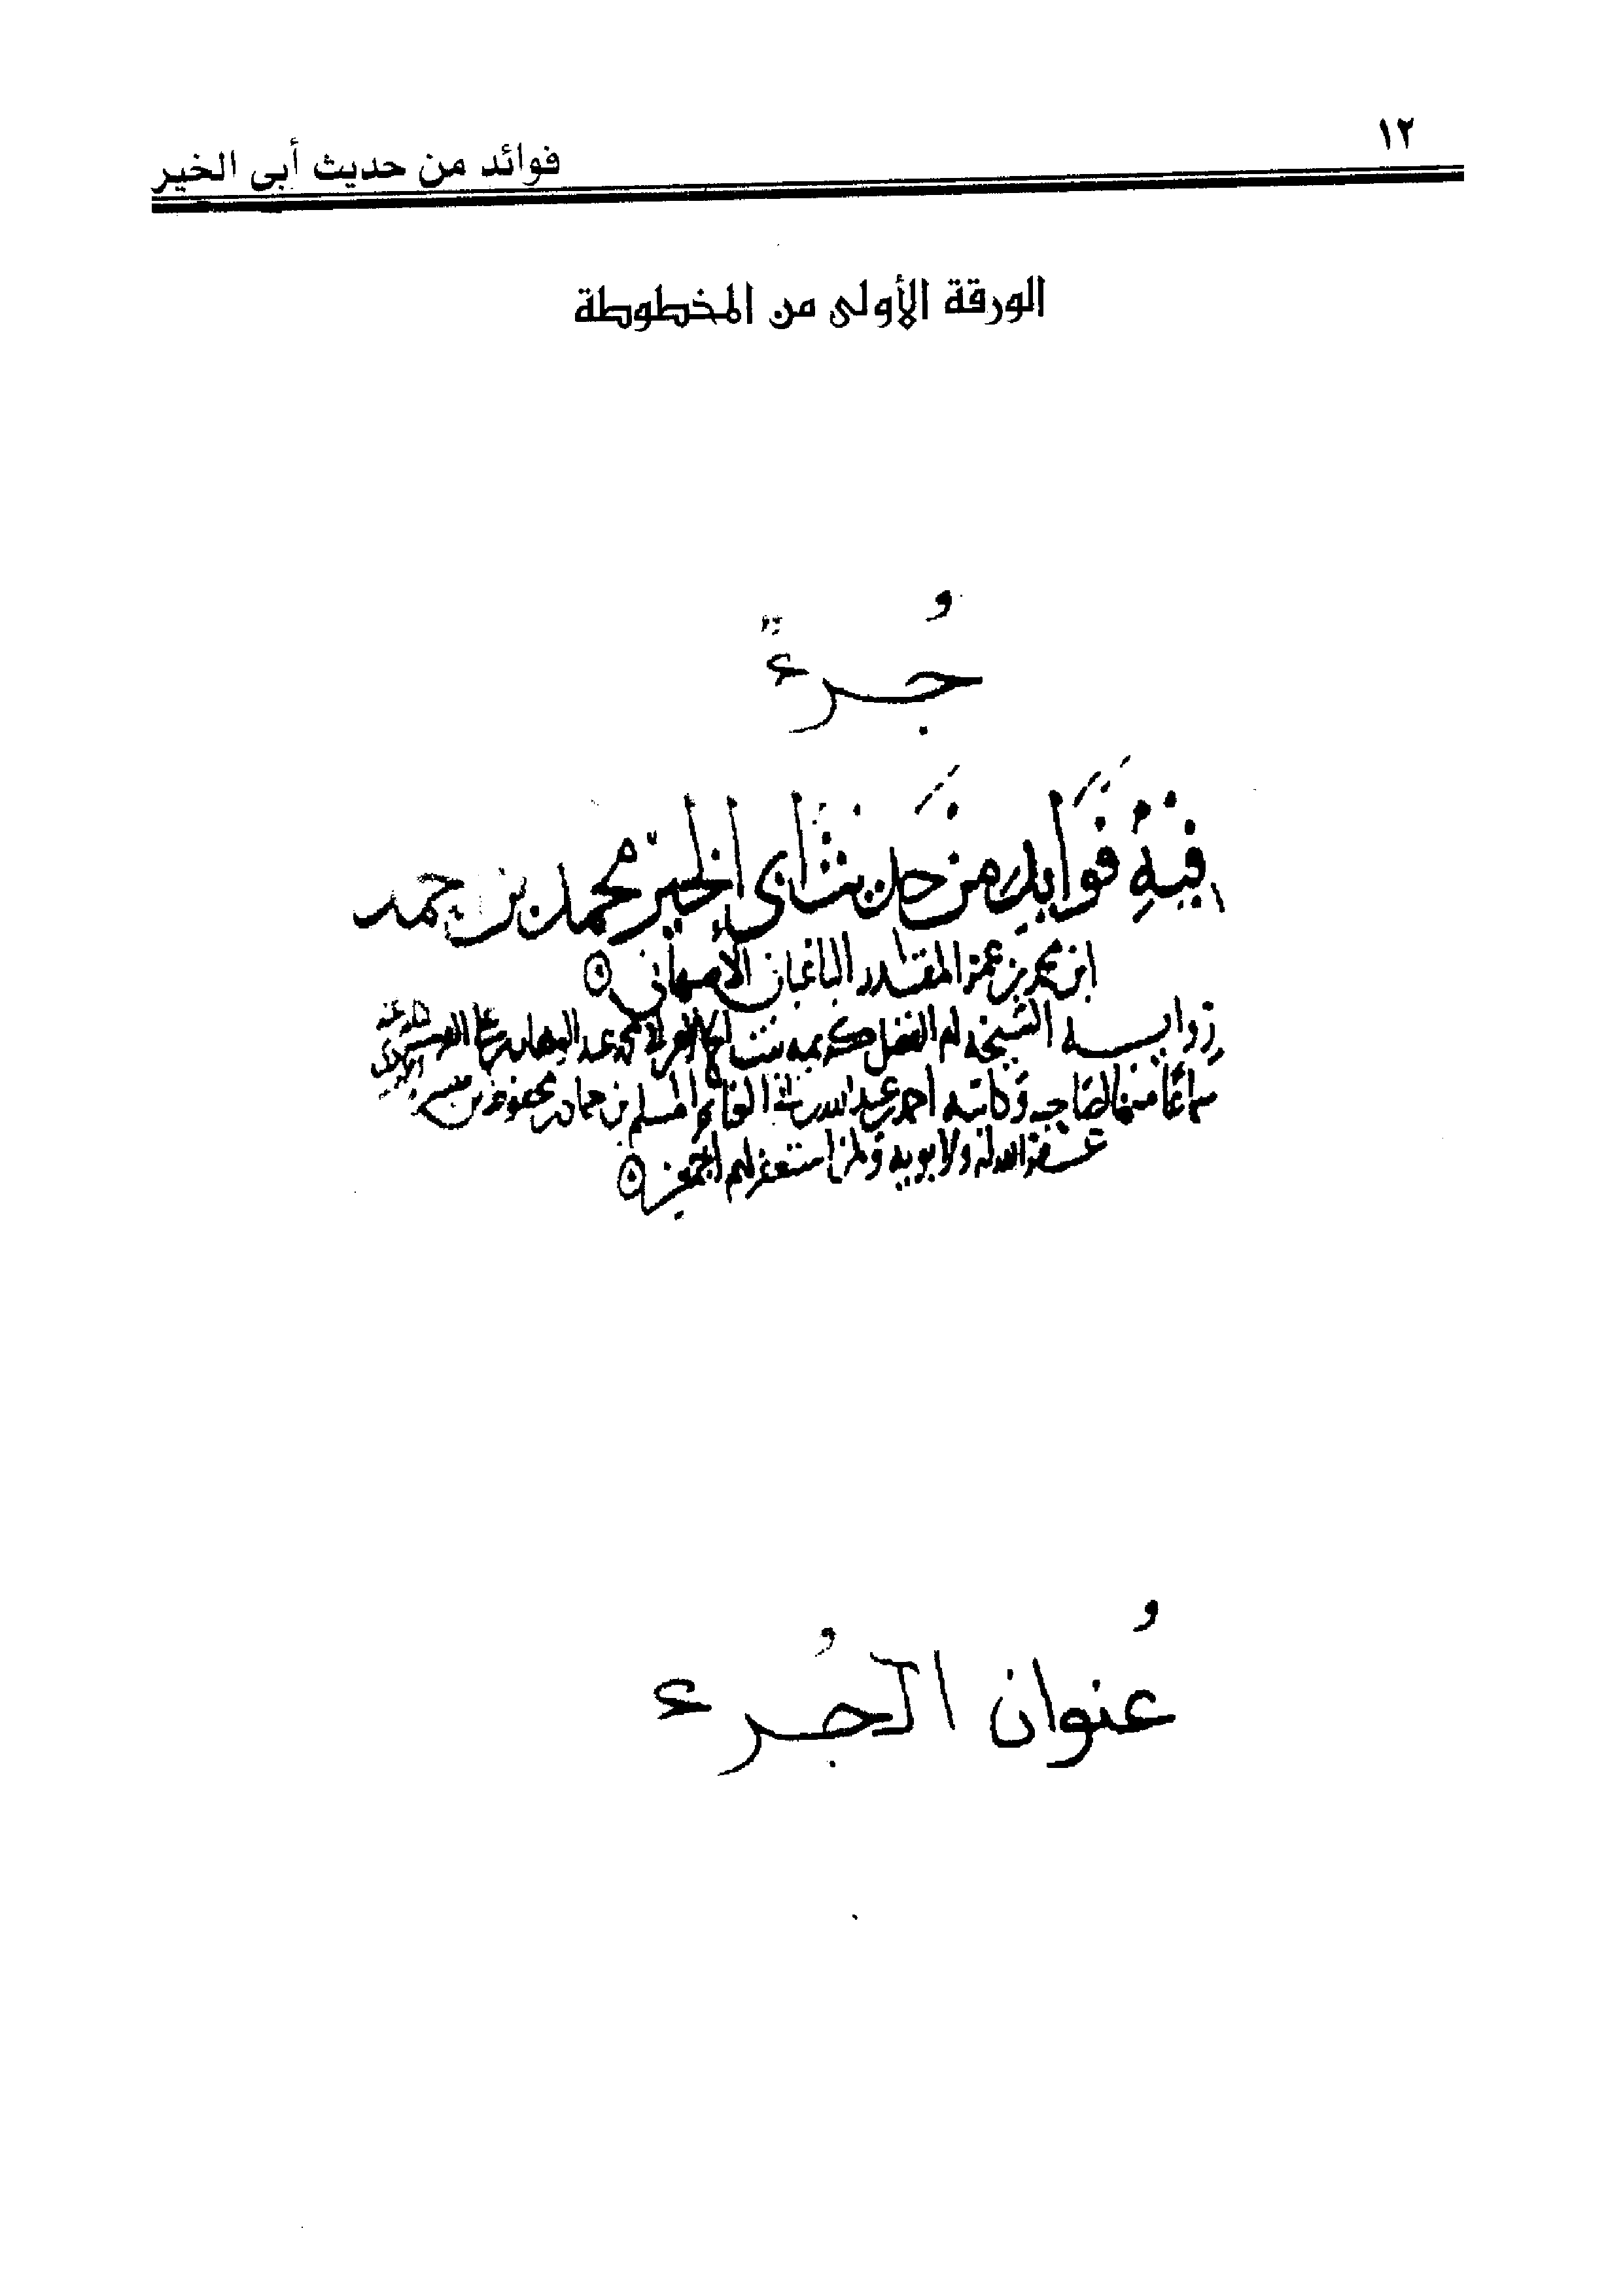 ١٢
فوائد من حديث أبي الخير
الورقة الأولى من المخطوطة
جُزءٌ
فيه فَوَايد من حَديث أبي الخير محمد بن حمد
ابن محمد بن عمر المقدر الباغبان الأصبهاني
رواية الشيخة أم الفضل كريمة بنت عبد الوهاب بن علي القرشي
سماعًا منها لصاحبه وكاتبه أحمد بن عبد الله بن أبي الغنائم المسلم بن حماد بن محفوظ بن ميسرة
غفر الله له ولأبويه ولمن استغفر لهم أجمعين
عُنوان الجُزء